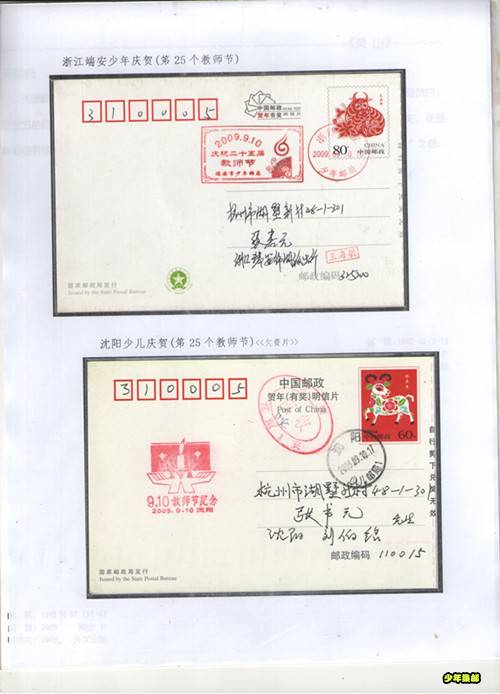 浙江端安少年庆贺(第25个教师节)
3 1 0 0 0 5
中国邮政
贺年有奖 明信片
80分
CHINA
中国邮政
2009.9.10
庆祝二十五届
教师节
瑞安市少年邮局
少年邮局
杭州市湖墅新村48-1-301
邮政编码 325200
国家邮政局发行
Issued by the State Postal Bureau
沈阳少儿庆贺(第25个教师节)<<欠费片>>
3 1 0 0 0 5
中国邮政
贺年(有奖)明信片
Post of China
中国邮政
60分
沈阳
2009.09.10.17
自行剪下兑换无效
9.10教师节纪念
2009.9.10 沈阳
杭州市湖墅新村48-1-30
先生
沈阳 刘伯
邮政编码 110015
国家邮政局发行
Issued by the State Postal Bureau
少年集邮